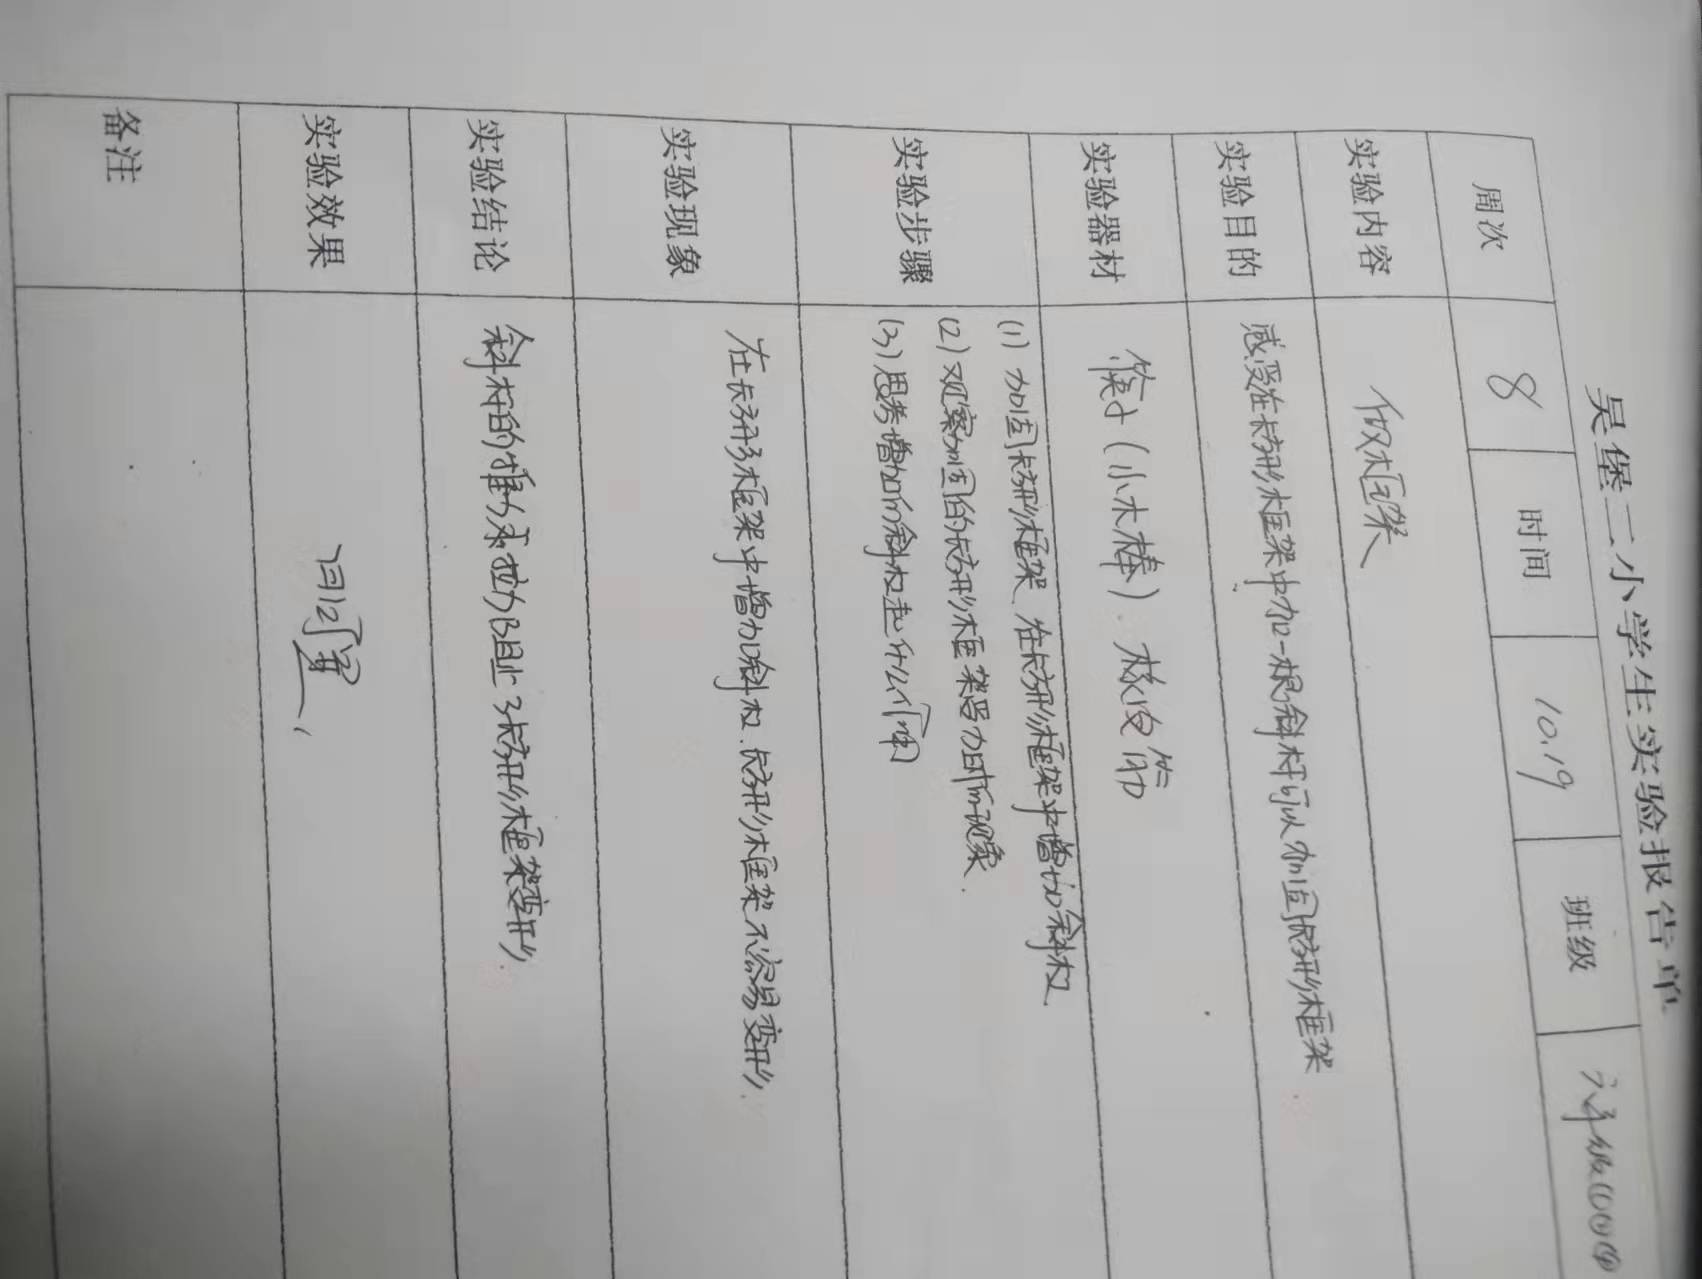 吴堡二小学生实验报告单
周次 8 时间 10.19 班级 六年级
实验内容 做框架
实验目的 感受在长方形框架中加一根斜杆可以加固长方形框架
实验器材 筷子(小木棒). 橡皮筋
实验步骤 (1) 加固长方形框架, 在长方形框架中增加斜杈.
(2) 观察加固后的长方形框架受力时的现象.
(3) 思考增加的斜杈起什么作用
实验现象 在长方形框架中增加斜杈.长方形框架不容易变形.
实验结论 斜杆的推力或拉力阻止了长方形框架变形.
实验效果
备注